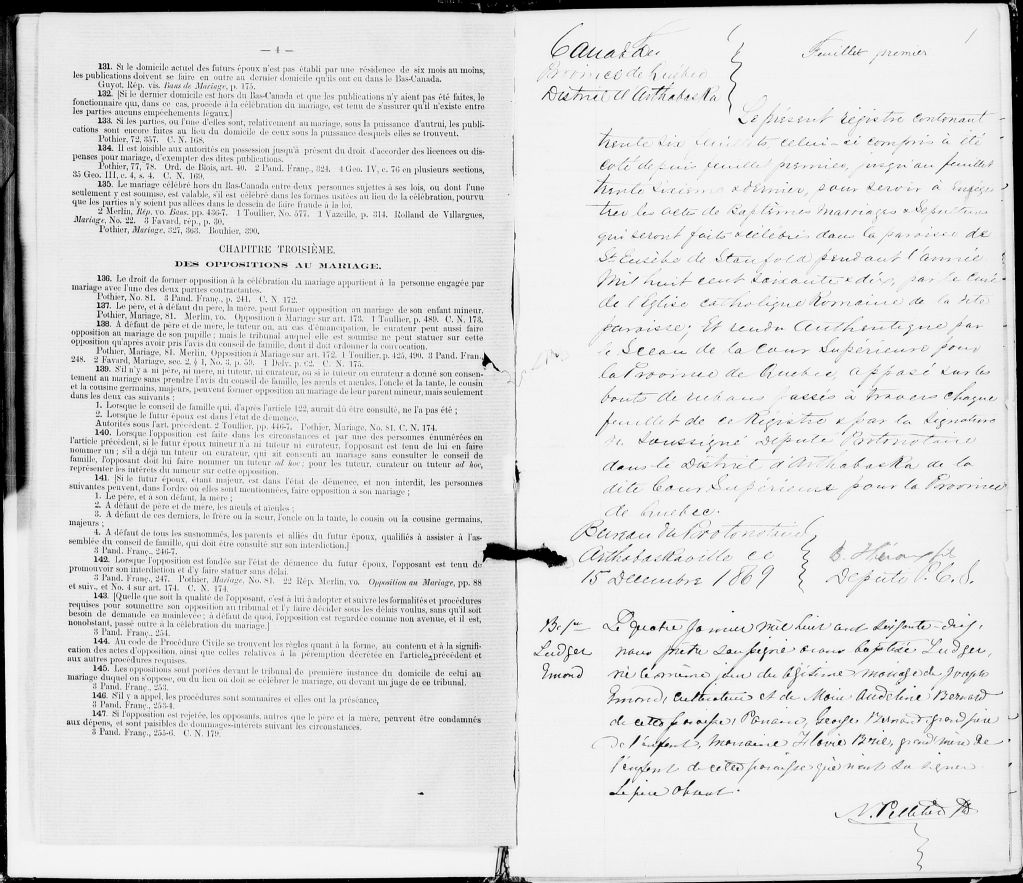 — 4 —
131. Si le domicile actuel des futurs époux n'est pas établi par une résidence de six mois au moins,
les publications doivent se faire en outre au dernier domicile qu'ils ont eu dans le Bas-Canada.
Guyot, Rép. vis. Bans de Mariage, p. 175.
132. [Si le dernier domicile est hors du Bas-Canada et que les publications n'y aient pas été faites, le
fonctionnaire qui, dans ce cas, procède à la célébration du mariage, est tenu de s'assurer qu'il n'existe entre
les parties aucuns empêchements légaux.]
133. Si les parties, ou l'une d'elles sont, relativement au mariage, sous la puissance d'autrui, les publi-
cations sont encore faites au lieu du domicile de ceux sous la puissance desquels elles se trouvent.
Pothier, 72, 357. C. N. 168.
134. Il est loisible aux autorités en possession jusqu'à présent du droit d'accorder des licences ou dis-
penses pour mariage, d'exempter des dites publications.
Pothier, 77, 78. Ord. de Blois, art. 40. 2 Pand. Franç., 324. 4 Geo. IV, c. 76 en plusieurs sections,
35 Geo. III, c. 4, s. 4. C. N. 169.
135. Le mariage célébré hors du Bas-Canada entre deux personnes sujettes à ses lois, ou dont l'une
seulement y est soumise, est valable, s'il est célébré dans les formes usitées au lieu de la célébration, pourvu
que les parties n'y soient pas allées dans le dessein de faire fraude à la loi.
2 Merlin, Rép. vo. Bans. pp. 436-7. 1 Toullier, No. 577. 1 Vazeille, p. 314. Rolland de Villargues,
Mariage, No. 22. 3 Favard, rép., p. 30.
Pothier, Mariage, 327, 363. Bouhier, 390.
CHAPITRE TROISIÈME.
DES OPPOSITIONS AU MARIAGE.
136. Le droit de former opposition à la célébration du mariage appartient à la personne engagée par
mariage avec l'une des deux parties contractantes.
Pothier, No. 81. 3 Pand. Franç., p. 241. C. N. 172.
137. Le père, et à défaut du père, la mère, peut former opposition au mariage de son enfant mineur.
Pothier, Mariage, 81. Merlin, vo. Opposition à Mariage sur art. 173. 1 Toullier, p. 489. C. N. 173.
138. A défaut de père et de mère, le tuteur ou, au cas d'émancipation, le curateur peut aussi faire
opposition au mariage de son pupille; mais le tribunal auquel elle est soumise ne peut statuer sur cette
opposition qu'après avoir pris l'avis du conseil de famille, dont il doit ordonner la convocation.
Pothier, Mariage, 81. Merlin, Opposition à Mariage sur art. 172. 1 Toullier, p. 425, 490. 3 Pand. Fran.
248. 2 Favard, Mariage, sec. 2 § 1, No. 3, p. 59. 1 Delv., p. 62. C. N. 175.
139. S'il n'y a ni père, ni mère, ni tuteur, ni curateur, ou si le tuteur ou curateur a donné son consen-
tement au mariage sans prendre l'avis du conseil de famille, les aïeuls et aïeules, l'oncle et la tante, le cousin
et la cousine germains, majeurs, peuvent former opposition au mariage de leur parent mineur, mais seulement
dans les deux cas suivants;
1. Lorsque le conseil de famille qui, d'après l'article 122, aurait dû être consulté, ne l'a pas été;
2. Lorsque le futur époux est dans l'état de démence.
Autorités sous l'art. précédent. 2 Toullier, pp. 446-7. Pothier, Mariage, No. 81. C. N. 174.
140. Lorsque l'opposition est faite dans les circonstances et par une des personnes énumérées en
l'article précédent, si le futur époux mineur n'a ni tuteur ni curateur, l'opposant est tenu de lui en faire
nommer un; s'il a déjà un tuteur ou curateur, qui ait consenti au mariage sans consulter le conseil de
famille, l'opposant doit lui faire nommer un tuteur ad hoc; pour les tuteur, curateur ou tuteur ad hoc,
représenter les intérêts du mineur sur cette opposition.
141. [Si le futur époux, étant majeur, est dans l'état de démence, et non interdit, les personnes
suivantes peuvent, dans l'ordre où elles sont mentionnées, faire opposition à son mariage;
1. Le père, et à son défaut, la mère;
2. A défaut de père et de mère, les aïeuls et aïeules;
3. A défaut de ces derniers, le frère ou la sœur, l'oncle ou tante, le cousin ou la cousine germains,
majeurs;
4. A défaut de tous les susnommés, les parents et alliés du futur époux, qualifiés à assister à l'as-
semblée du conseil de famille, qui doit être consulté sur son interdiction.]
3 Pand. Franç., 246-7.
142. Lorsque l'opposition est fondée sur l'état de démence du futur époux, l'opposant est tenu de
promouvoir son interdiction et d'y faire statuer sans délai.
3 Pand. Franç., 247. Pothier, Mariage, No. 81. 22 Rép. Merlin, vo. Opposition au Mariage, pp. 88
et suiv., et No. 4 sur art. 174. C. N. 174.
143. [Quelle que soit la qualité de l'opposant, c'est à lui à adopter et suivre les formalités et procédures
requises pour soumettre son opposition au tribunal et l'y faire décider sous les délais voulus, sans qu'il soit
besoin de demande en mainlevée; à défaut de quoi, l'opposition est regardée comme non avenue, et il est,
nonobstant, passé outre à la célébration du mariage.]
3 Pand. Franç., 254.
144. Au code de Procédure Civile se trouvent les règles quant à la forme, au contenu et à la signifi-
cation des actes d'opposition, ainsi que celles relatives à la péremption décrétée en l'article précédent et
aux autres procédures requises.
145. Les oppositions sont portées devant le tribunal de première instance du domicile de celui au
mariage duquel on s'oppose, ou du lieu où doit se célébrer le mariage, ou devant un juge de ce tribunal.
3 Pand. Franç., 253.
146. S'il y a appel, les procédures sont sommaires et elles ont la préséance,
3 Pand. Franç., 253-4.
147. Si l'opposition est rejetée, les opposants, autres que le père et la mère, peuvent être condamnés
aux dépens, et sont passibles de dommages-intérêts suivant les circonstances.
3 Pand. Franç., 255-6. C. N. 179.
1
Canada
Feuillet premier
Province de Québec
District d'Arthabaska
Le présent régistre contenant
trente six feuillets celui-ci compris a été
coté depuis feuillet premier, jusqu'au feuillet
trente sixième & dernier, pour servir à enrégis
trer les actes de Baptêmes Mariages & Sépultures
qui seront faits & célébrés dans la paroisse de
St Eusèbe de Stanfold pendant l'année
Mil huit cent soixante & dix, par le Curé
de l'Eglise catholique Romaine de la dite
paroisse. Et rendu Authentique par
le Sceau de la Cour Supérieure pour
la Province de Quebec, apposé sur les
bouts de rubans passés à travers chaque
feuillet de ce Régistre & par la Signature
du Soussigné Député Protonotaire
dans le District d'Arthabaska de la
dite Cour Supérieure pour la Province
de Quebec.
Bureau du Protonotaire
Arthabaskaville ce
15 Décembre 1869
Député P. C. S.
B. 1er
Ludger
Emond
Le quatre Janvier mil huit cent soixante-dix,
nous prêtre soussigné avons baptisé Ludger,
né le même jour du légitime mariage de Joseph
Emond, cultivateur et de Marie Audeline Bernard
de cette paroisse, Parrain, Georges Bernard, grand père
de l'enfant, Marraine Flavie Brie, grand'mère de
l'enfant de cette paroisse qui n'ont su signer
Le père absent.
N. Pelletier Ptr